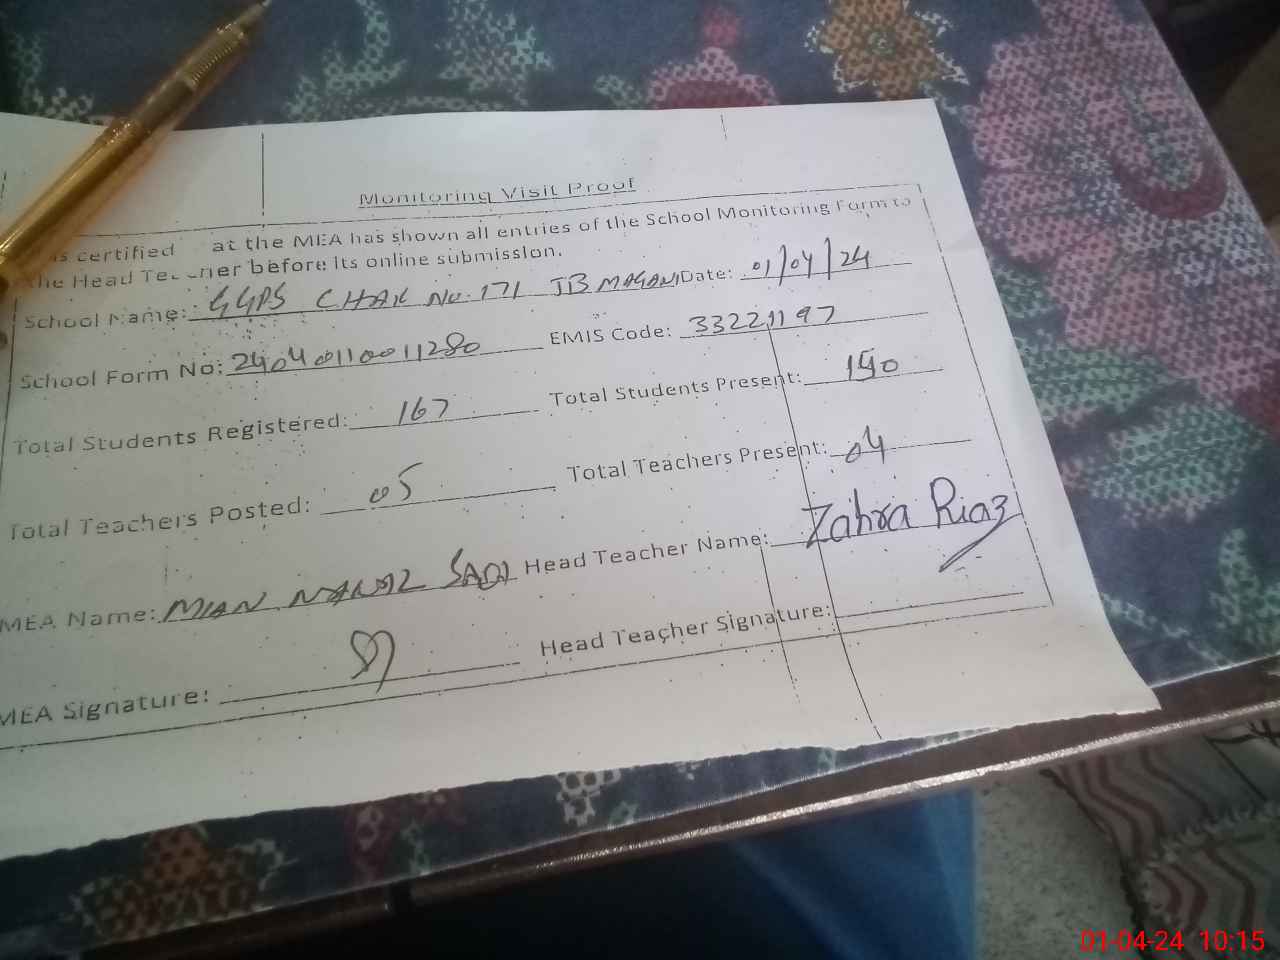 Monitoring Visit Proof
is certified at the MEA has shown all entries of the School Monitoring Form to
the Head Teacher before its online submission.
School Name: GGPS CHAK No. 171 JB MAGANI Date: 01/04/24
School Form No: 24040110011280 EMIS Code: 33221197
Total Students Registered: 167 Total Students Present: 150
Total Teachers Posted: 05 Total Teachers Present: 04
MEA Name: MIAN NAWAZ Head Teacher Name: Zahra Riaz
MEA Signature: Head Teacher Signature:
01-04-24 10:15